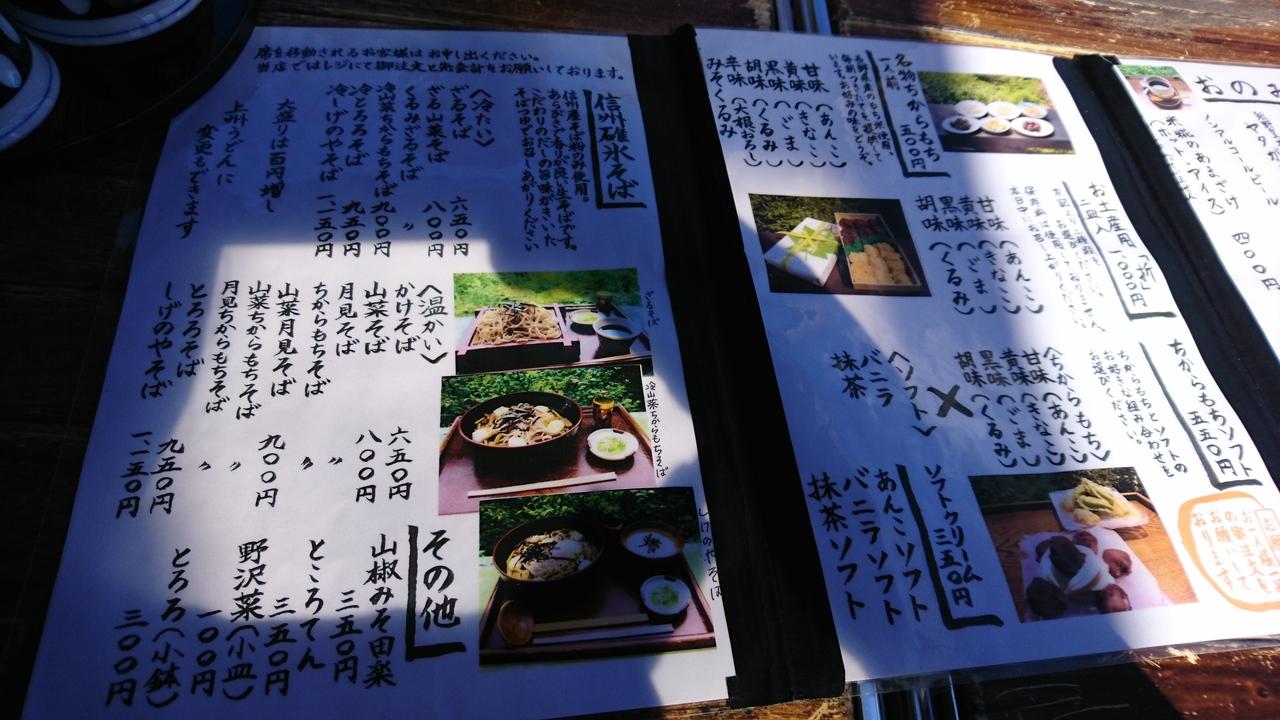 席を移動されるお客様はお申し出ください。
当店ではレジにて御注文と先会計をお願いしております。
信州碓氷そば
信州産そば粉のみ使用。
あらびきで香りが良い生そばです。
こだわりのだしの旨味がきいた
そばつゆでお召し上がりください
〈冷たい〉
ざるそば 六五〇円
ざる山菜そば 八〇〇円
くるみざるそば 〃
冷山菜ちからもちそば 九〇〇円
冷とろろそば 九五〇円
冷しげのやそば 一、一五〇円
大盛りは百円増し
上州うどんに
変更もできます
〈温かい〉
かけそば 六五〇円
山菜そば 八〇〇円
月見そば 〃
ちからもちそば 〃
山菜月見そば
山菜ちからもちそば 九〇〇円
月見ちからもちそば 〃
とろろそば 九五〇円
しげのやそば 一、一五〇円
ざるそば
冷山菜ちからもちそば
しげのやそば
その他
山椒みそ田楽 三五〇円
ところてん 三五〇円
野沢菜(小皿) 一〇〇円
とろろ(小鉢) 三〇〇円
名物ちからもち 五〇〇円
一人前
甘味(あんこ)
黄味(きなこ)
黒味(ごま)
胡味(くるみ)
辛味(大根おろし)
みそくるみ
お土産用「折」
二皿入 一、〇〇〇円
甘味(あんこ)
黄味(きなこ)
黒味(ごま)
胡味(くるみ)
ちからもちソフト 五五〇円
ちからもちとソフトの
お好きな組み合わせを
お選びください。
〈ちからもち〉
甘味(あんこ)
黄味(きなこ)
黒味(ごま)
胡味(くるみ)
×
〈ソフト〉
バニラ
抹茶
ソフトクリーム 三五〇円
あんこソフト
バニラソフト
抹茶ソフト
ノンアルコールビール 四〇〇円
米糀のあまざけ